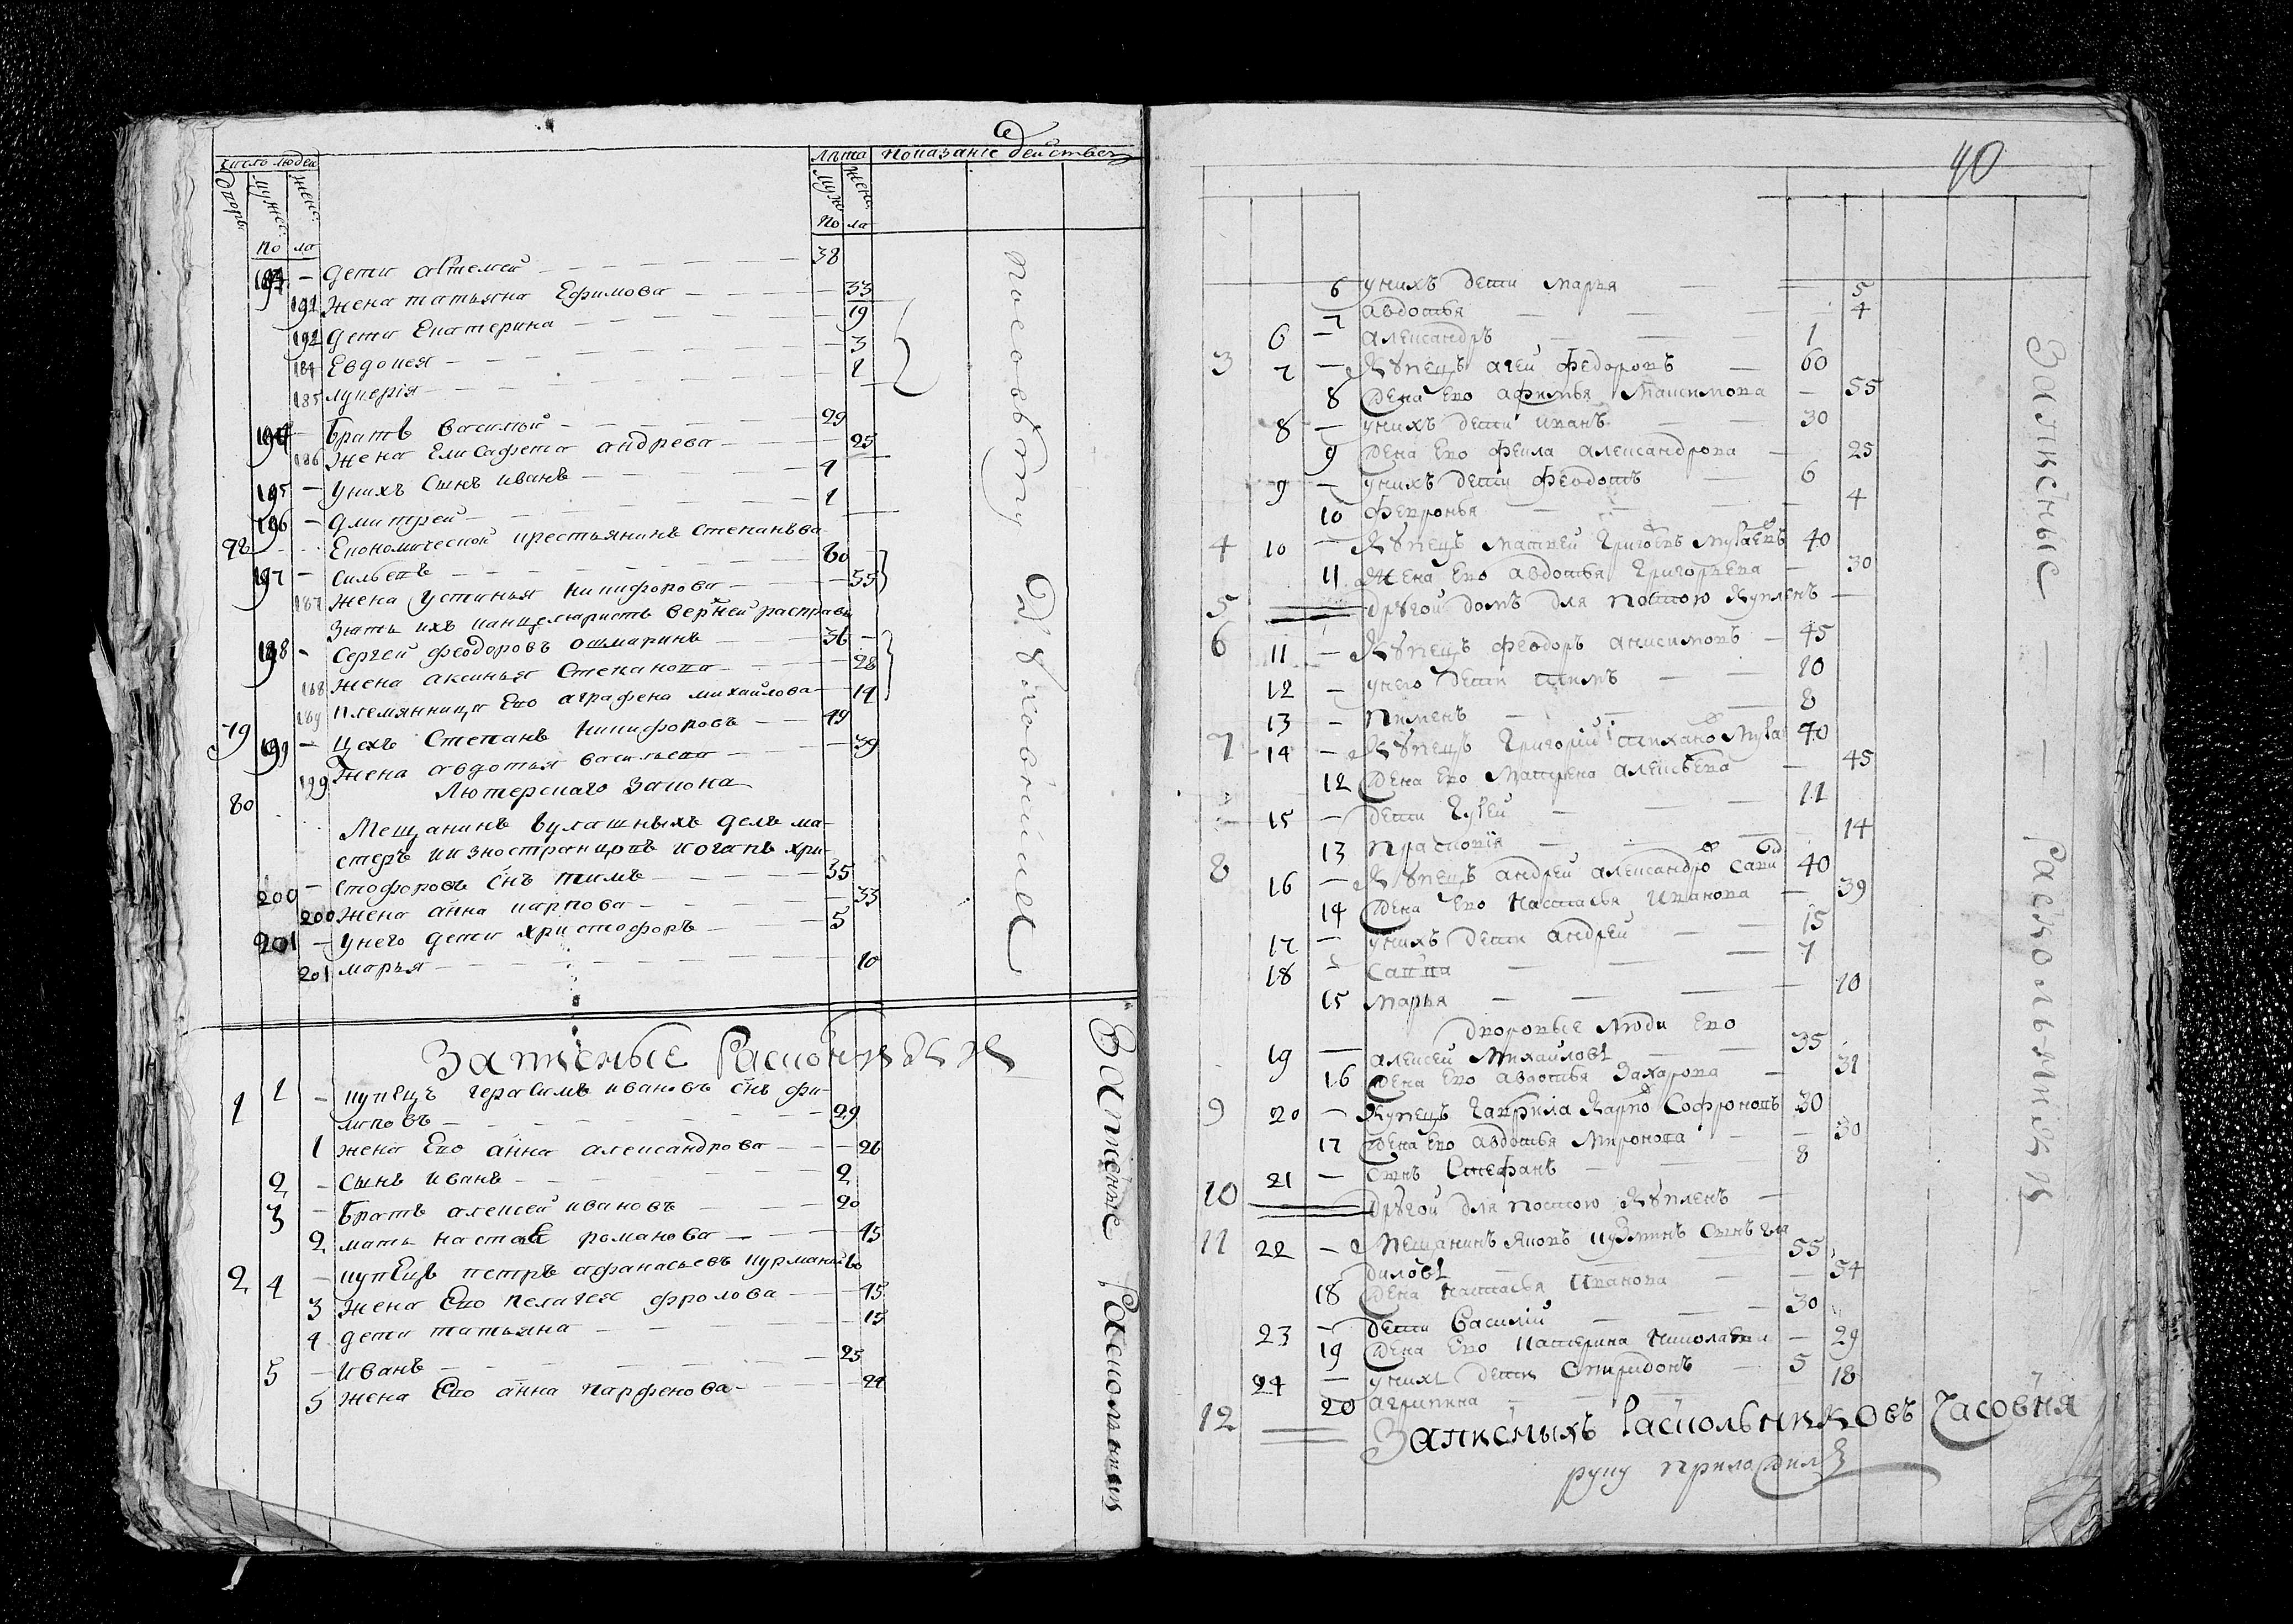 число людей
лѣта показание действ
Дворы мужес. женс. муж. женс.
по ла по ла
— дети артемей — 38
191 жена татьяна Ефимова — 33
192 дети Екатерина — 19
184 Евдокея — 3
185 лукерія — 1
194 — братъ василей — 29
186 жена Елисафета андрева — 25
195 — унихъ сынъ иванъ — 4
196 — дмитрей — 1
78 Економической крестьянинъ степанъ ва
197 — сильевъ — 60
187 жена устинья никифорова — 55
зять ихъ канцеляристъ верхней расправы
198 — сергей феодоровъ ошмаринъ — 36
188 жена аксинья степанова — 28
189 племянница Его аграфена михайлова — 14
79 199 — цехъ степанъ никифоровъ — 49
199 жена авдотья васильева — 39
80 Лютерскаго закона
мещанинъ
стеръ иизностранцовъ иоганъ хри-
200 — стофоровъ снъ тимъ — 35
200 жена анна карпова — 33
201 — унего дети христофоръ — 5
201 марья — 10
поевоему духовныие
Записные Раскольники
1 1 — купецъ герасимъ ивановъ снъ фи-
липовъ — 29
1 жена Его анна александрова — 26
2 — сынъ иванъ — 2
3 — братъ алексей ивановъ — 20
2 мать настасё романова — 45
2 4 — купецъ петръ афанасьевъ
3 жена Его пелагея фролова — 45
4 дети татьяна — 15
5 — иванъ — 25
5 жена Его анна парфенова — 24
Записные Раскольники
40
6 унихъ дети марья — 5
7 авдотья — 4
6 — александръ — 1
3 7 — купецъ агей федоровъ — 60
8 жена Его афимья максимова — 55
8 — унихъ дети иванъ — 30
9 жена Его фекла александрова — 25
9 — унихъ дети феодотъ — 6
10 февронья — 4
4 10 — купецъ матвей григоевъ 40
11 жена Его авдотья григорьева — 30
5 другой домъ для постою купленъ —
6 11 — купецъ феодоръ анисимовъ — 45
12 — унего дети 10
13 — пименъ — 8
7 14 — купецъ григорій 40
12 жена Его матрена алексѣева — 45
15 — дети гурей — 11
13 прасковія — 14
8 16 — купецъ андрей александро 40
14 жена Его настасья иванова — 39
17 — унихъ дети андрей — 15
18 — савва — 7
15 марья — 10
дворовые люди Его
19 — алексей михайловъ — 35
16 жена Его авдотья захарова — 31
9 20 — купецъ гаврила карпо софроновъ 30
17 жена Его авдотья миронова — 30
21 — сынъ стефанъ — 8
10 другой для постою купленъ —
11 22 — мещанинъ яковъ кузминъ сынъ гла
диловъ — 55
18 жена настасья иванова — 54
23 — дети василій — 30
19 жена Его катерина николаева — 29
24 — унихъ дети спиридонъ — 5
20 агрипина — 18
12 Записныхъ Раскольниковъ Часовня
руку приложилъ
Записные — раскольники